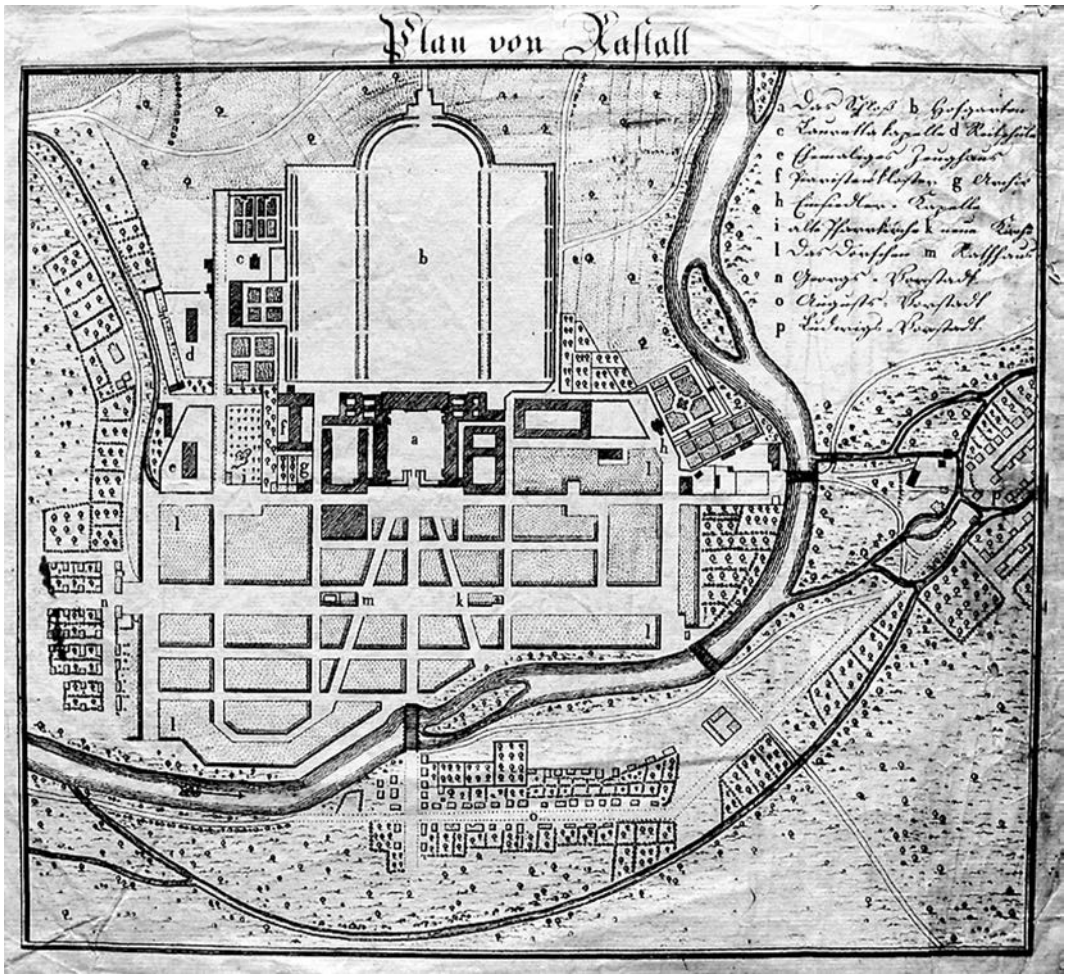 Plan von Rastatt
a Das Schloß b Hofgarten
c Lauretta kapelle d Reitschule
e Ehemaliges Zeughaus
f Piaristenkloster g Archiv
h Einsiedler-Kapelle
i alte Pfarrkirche k neue Kirche
l Das Dörfchen m Rathhaus
n Georgs-Vorstadt
o Augusts-Vorstadt
p Ludwigs-Vorstadt.
b
c
d
f
a
h
e
g
l
i
p
l
n
m
k
l
l
o